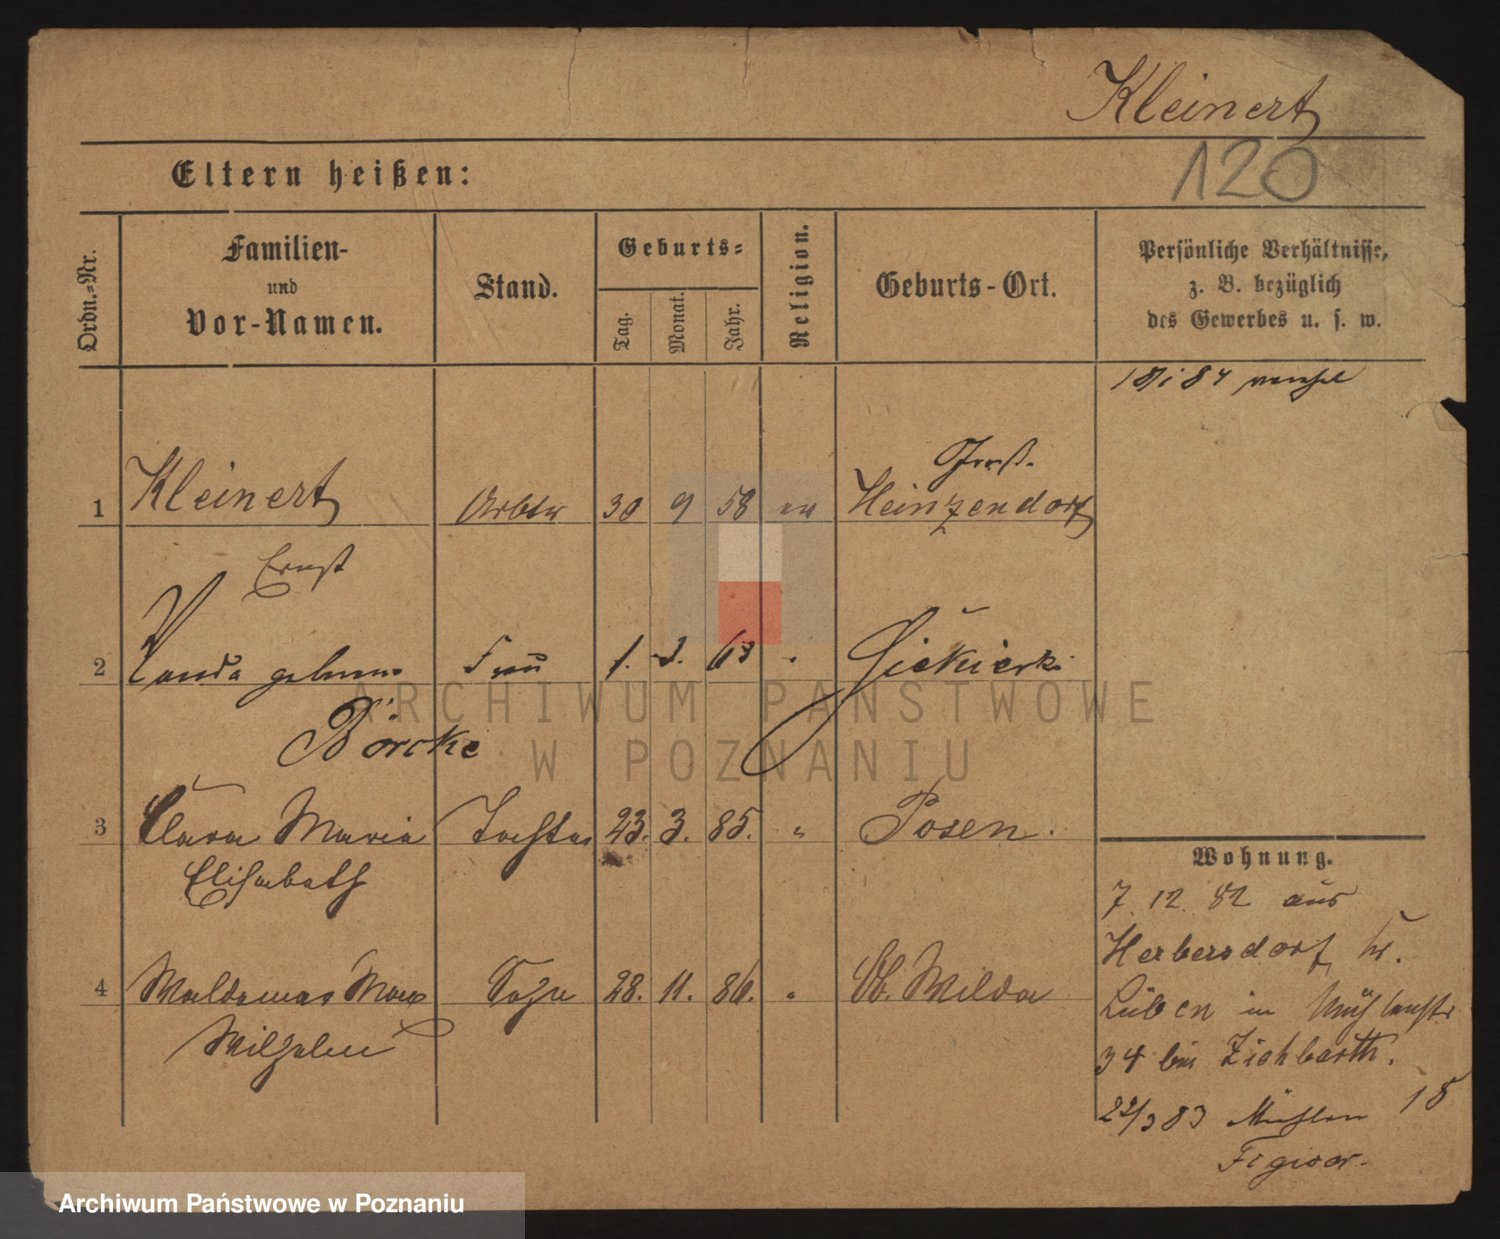 Kleinert
120
Eltern heißen:
Ordn.=Nr.
Familien-
und
Vor-Namen.
Stand.
Geburts=
Tag.
Monat.
Jahr.
Religion.
Geburts-Ort.
Persönliche Verhältnisse,
z. B. bezüglich
des Gewerbes u. s. w.
84
1 Kleinert 30 9 58 Heinzendorf
Ernst
2 geborene Frau 1. 3. 63
Börcke
3 Clara Maria Tochter 23. 3. 85. " Posen.
Elisabeth
4 Waldemar Max Sohn 28. 11. 86. " Ob. Wilda
Wilhelm
Wohnung.
7. 12. 82 aus
Herbersdorf, Kr.
Lüben in Mühlenstr
34 bei Zichbarth.
22/3 83 Mühlen 18
ARCHIWUM PAŃSTWOWE
W POZNANIU
Archiwum Państwowe w Poznaniu